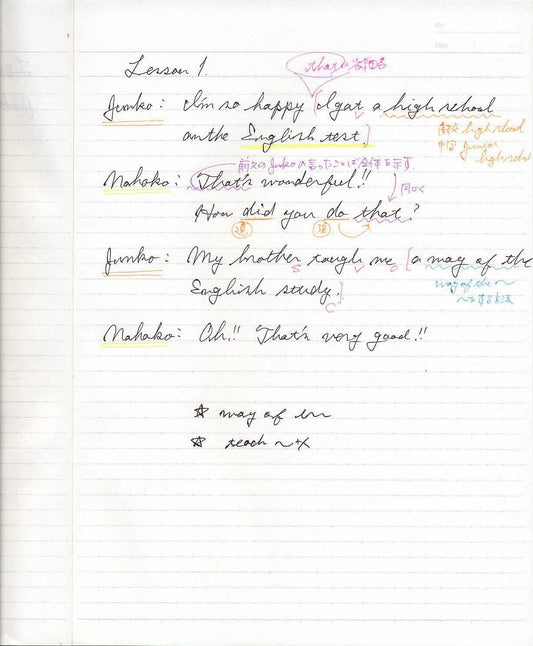 Lesson 1.
thatの省略
Junko: I'm so happy I got a high school
on the English test.
高校 high school
中学 junior
high school
前文のJunkoの言ったことば全体を示す.
Nahoko: That's wonderful!!
同じく
How did you do that?
過
Junko: My brother tough me [a way of the
S V O
English study.]
C
way of the ～
～する方法
Nahoko: Oh!! That's very good!!
☆ way of
☆ teach ～ + x